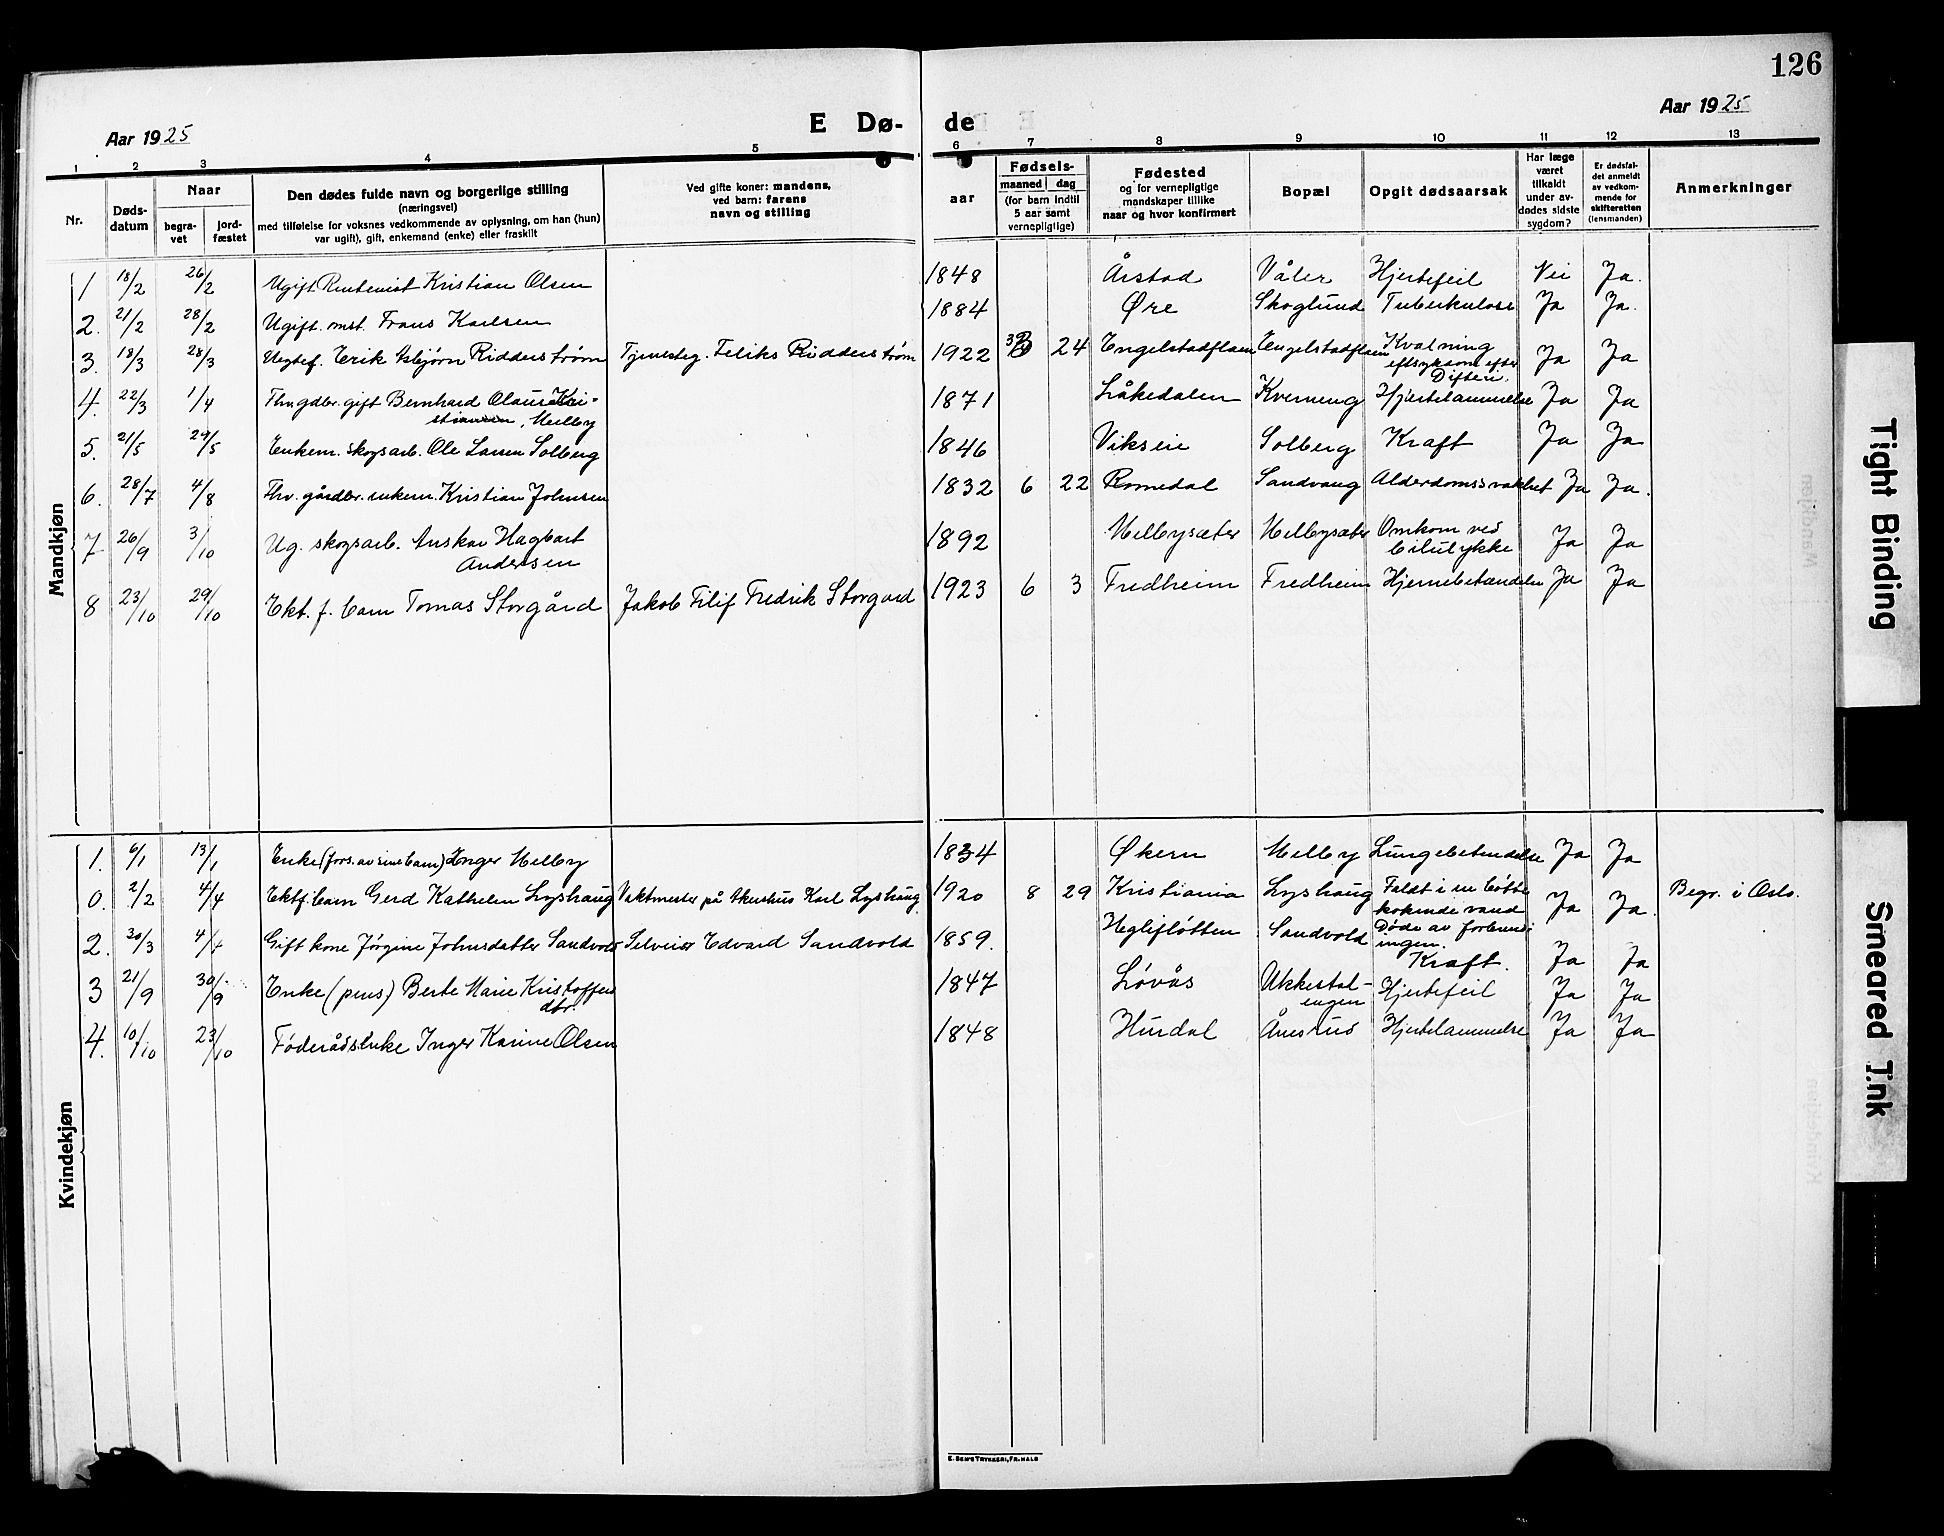 126
Aar 1925
E Dø-
de
Aar 1925
1 2 3 4 5 6 7 8 9 10 11 12 13
Nr.
Døds-
datum
Naar
begra-
vet
jord-
fæstet
Den dødes fulde navn og borgerlige stilling
(næringsvei)
med tilføielse for voksnes vedkommende av oplysning, om han (hun)
var ugift), gift, enkemand (enke) eller fraskilt
Ved gifte koner: mandens,
ved barn: farens
navn og stilling
aar
Fødsels-
maaned dag
(for barn indtil
5 aar samt
vernepligtige)
Fødested
og for vernepligtige
mandskaper tillike
naar og hvor konfirmert
Bopæl
Opgit dødsaarsak
Har læge
været
tilkaldt
under av-
dødes sidste
sygdom?
Er dødsfal-
det anmeldt
av vedkom-
mende for
skifteretten
(lensmanden)
Anmerkninger
Mandkjøn
1 18/2 26/2 Ugift Kristian Olsen 1848 Årstad Våler Hjertefeil Nei Ja.
2. 21/2 28/2 Ugift. mst. Frans Karlsen 1884 Øre Skoglund Tuberkulose Ja Ja.
3. 18/3 28/3 Uegtef. Erik Asbjørn Ridderstrøm Tjenesteg. Feliks Ridderstrøm 1922 3 24 Engelstadflaen Engelstadflaen Kvalning
eftsykdom efter
Difteri.
Ja Ja
4. 22/3 1/4 Fhv. gdbr. gift Bernhard Olaus Kri-
stiansen, Melby
1871 Låkedalen Kverneng Hjertelammelse Ja Ja
5. 21/5 29/5 Enkem. skogsarb. Ole Larsen Solberg 1846 Vikseie Solberg Kræft Ja Ja
6. 28/7 4/8 Fhv. gårdbr. enkem. Kristian Johnsen 1832 6 22 Romedal Sandvang Alderdomssvakhet Ja Ja.
7 26/9 3/10 Ug. skogsarb. Anskar Hagbart
Andersen
1892 Melbysæter Melbysæter Omkom ved
bilulykke
Ja Ja
8 23/10 29/10 Ekt. f. barn Tomas Storgård Jakob Filif Fredrik Storgard 1923 6 3 Fredheim Fredheim Hjernebetændelse Ja Ja
Kvindekjøn
1. 6/1 13/1 Enke (fors. av sine barn) Inger Melby 1834 Økern Melby Lungebetendelse Ja Ja
0. 2/2 4/4 Ektf. barn Gerd Kathelen Lyshaug Vaktmester på Akershus Karl Lyshaug 1920 8 29 Kristiania Lyshaug Faldt i en bøtte
kokende vand
Døde av forbrend-
ingen.
Ja Ja. Begr. i Oslo.
2. 30/3 4/4 Gift kone Jørgine Johnsdatter Sandvold Selveier Edvard Sandvold 1859. Heglifløtten Sandvold Kræft. Ja Ja
3 21/9 30/9 Enke (pens) Berte Marie Kristoffers
dtr.
1847 Løvås Ukkestal-
engen
Hjertefeil Ja Ja
4. 10/10 23/10 Føderådsenke Inger Karine Olsen 1848 Hurdal Ånesrud Hjertelammelse Ja Ja
E. SEM'S TRYKKERI, FR.HALD
Tight Binding
Smeared Ink